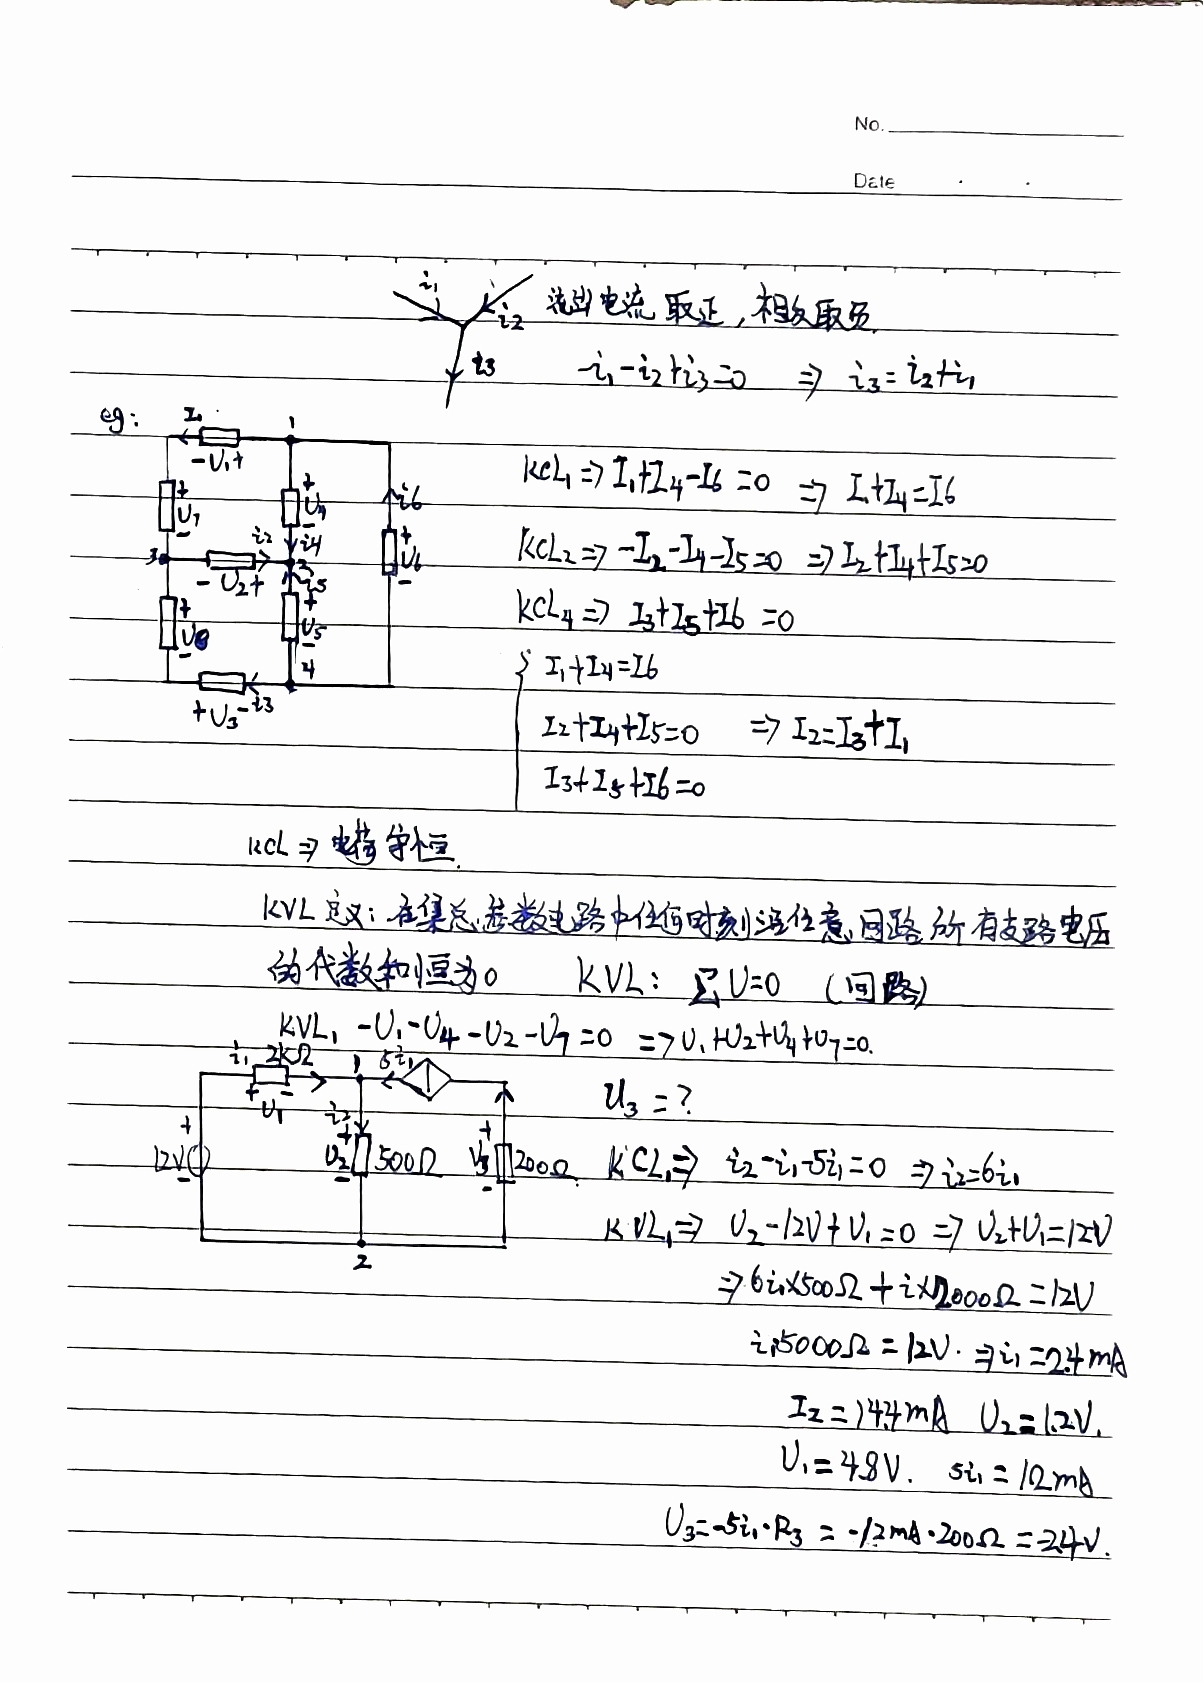 No.
Date
i₁ i₂ 流出电流取正,相反取负.
i₃ -i₁-i₂+i₃=0 ⇒ i₃=i₂+i₁
eg: I₁ 1
-U₁+ KCL₁⇒ I₁+I₄-I6=0 ⇒ I₁+I₄=I6
+ U₇ - + U₄ - i6
3 i₂ i4 2 + U6 - KCL₂⇒ -I₂-I₄-I5=0 ⇒ I₂+I₄+I5=0
- U₂+ i5
+ U8 - + U5 - KCL₄⇒ I3+I5+I6=0
4 I₁+I4=I6
+U₃- i3 I₂+I4+I5=0 ⇒ I₂=I3+I₁
I3+I5+I6=0
KCL⇒ 电荷守恒.
KVL定义: 在集总参数电路中任何时刻沿任意回路所有支路电压
的代数和恒为0 KVL: ΣU=0 (回路)
KVL₁ -U₁-U₄-U₂-U₇=0 ⇒ U₁+U₂+U₄+U₇=0.
i₁ 2kΩ 1 5i₁
+ U₁ - U₃=?
12V + - i₂ U₂ + - 500Ω U₃ + - 200Ω KCL₁⇒ i₂-i₁-5i₁=0 ⇒ i₂=6i₁
2 KVL₁⇒ U₂-12V+U₁=0 ⇒ U₂+U₁=12V
⇒ 6i₁×500Ω+i×2000Ω=12V
i₁5000Ω=12V. ⇒ i₁=2.4mA
I₂=14.4mA U₂=1.2V.
U₁=4.8V. 5i₁=12mA
U₃=-5i₁·R₃=-12mA·200Ω=-2.4V.